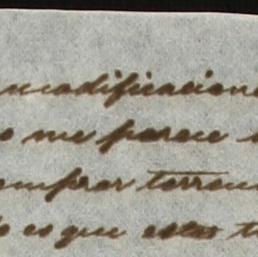 modificacion
o me parece
omprar terren
o es que estos t